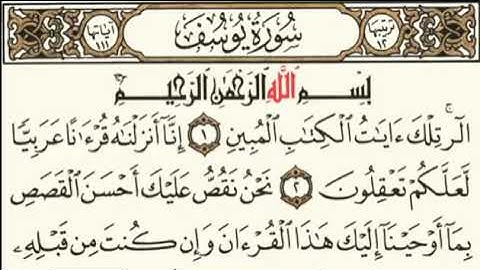 ترتيبها ١٢ سُورَةُ يُوسُفَ آياتها ١١١
بِسْمِ ٱللَّهِ ٱلرَّحْمَٰنِ ٱلرَّحِيمِ
الٓر ۚ تِلْكَ ءَايَٰتُ ٱلْكِتَٰبِ ٱلْمُبِينِ ١ إِنَّآ أَنزَلْنَٰهُ قُرْءَٰنًا عَرَبِيًّا
لَّعَلَّكُمْ تَعْقِلُونَ ٢ نَحْنُ نَقُصُّ عَلَيْكَ أَحْسَنَ ٱلْقَصَصِ
بِمَآ أَوْحَيْنَآ إِلَيْكَ هَٰذَا ٱلْقُرْءَانَ وَإِن كُنتَ مِن قَبْلِهِۦ